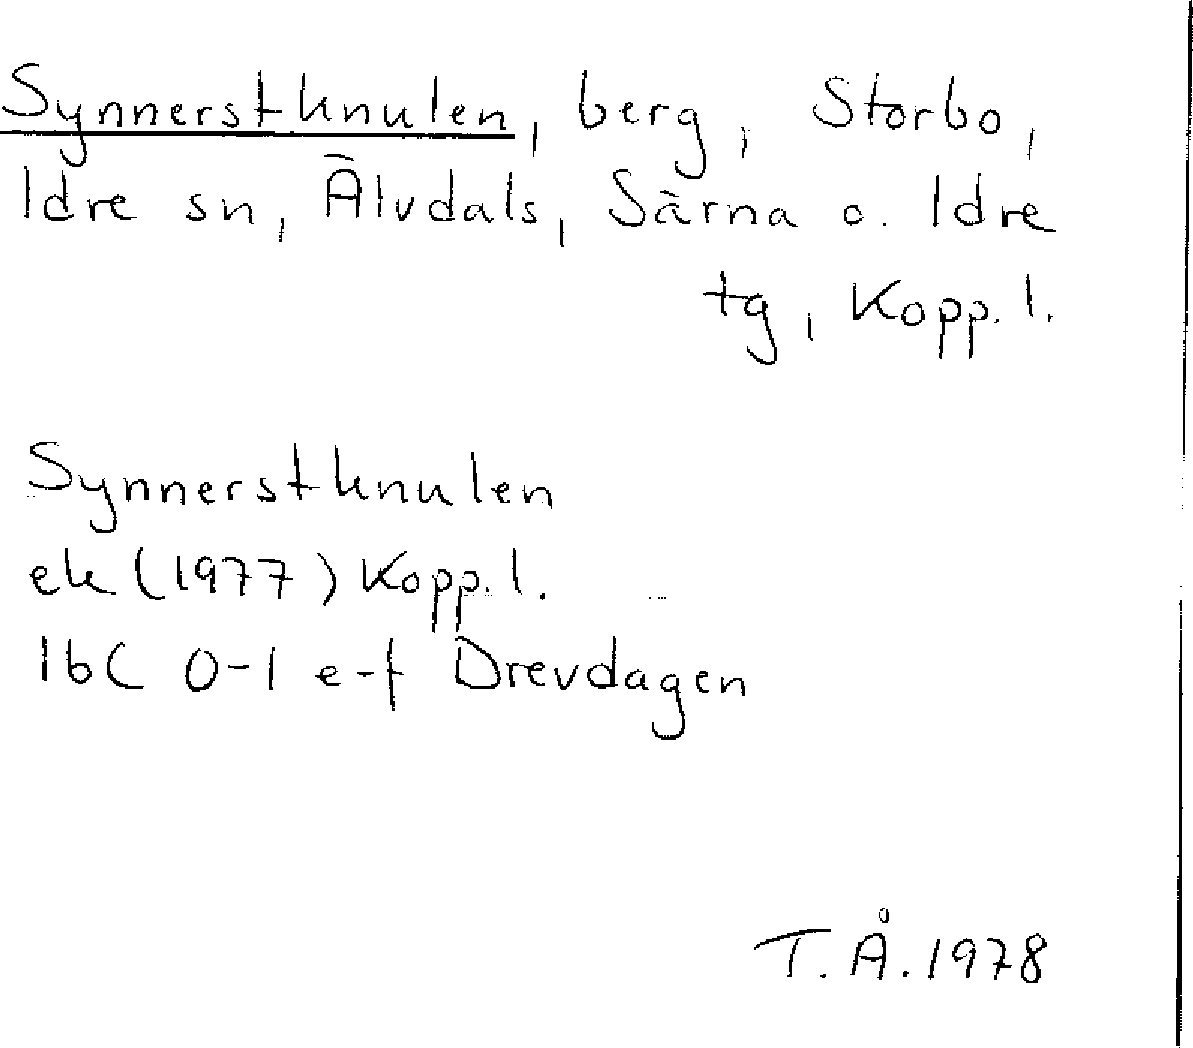 Synnerstknulen, berg, Storbo,
Idre sn, Älvdals, Särna o. Idre
tg, Kopp. l.
Synnerstknulen
ek (1977) Kopp. l.
16C 0-1 e-f Drevdagen
T. Å. 1978